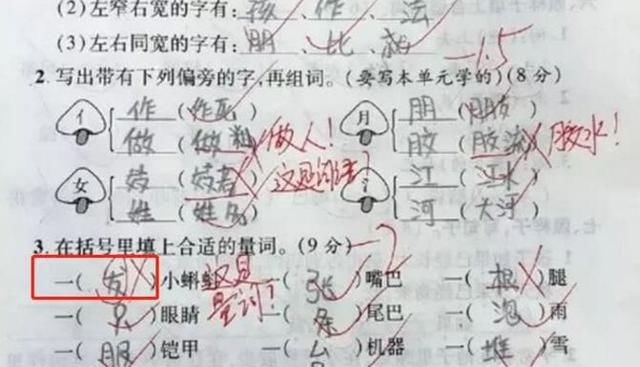 (2)左窄右宽的字有:孩、作、法
(3)左右同宽的字有:朋、比、
-1.5
2.写出带有下列偏旁的字,再组词。(要写本单元学的)(8分)
亻 作(作死) 月 朋(朋友)
做(做 ) 做人! 胶(胶 ) 胶水!
女 妓(妓者) 这是词语? 氵 江(江水)
姓(姓名) 河(大河)
3.在括号里填上合适的量词。(9分)
一(发)小蝌蚪 这是量词! 一(张)嘴巴 一(根)腿
一(只)眼睛 一(条)尾巴 一(泡)雨
一(服)铠甲 一(台)机器 一(堆)雪